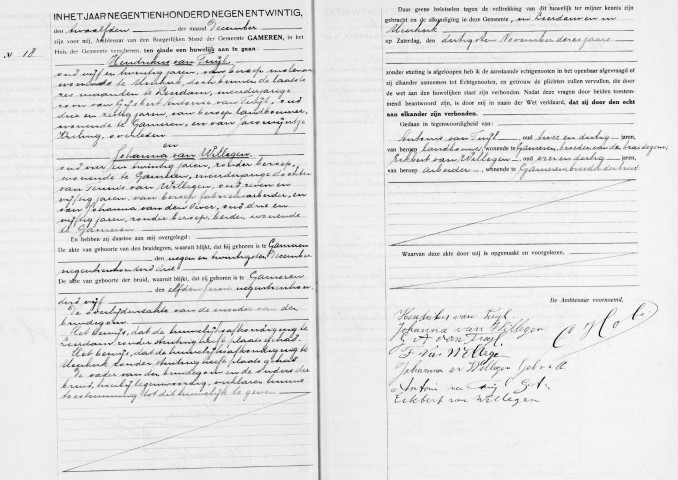 IN HET JAAR NEGENTIENHONDERD NEGEN EN TWINTIG,
den twaalfden der maand December
zijn voor mij, Ambtenaar van den Burgerlijken Stand der Gemeente GAMEREN, in het
Huis der Gemeente verschenen, ten einde een huwelijk aan te gaan:
No 18.
Hendrikus van Tuijl
oud vijf en twintig jaren, van beroep molenaar
wonende te Meerkerk, doch binnen de laatste
zes maanden te Leerdam, meerderjarige
zoon van Gijsbert Antonie van Tuijl, oud
drie en zestig jaren, van beroep landbouwer,
wonende te Gameren, en van Jacomijntje
overleden
en
Johanna van Willegen,
oud vier en twintig jaren, zonder beroep,
wonende te Gameren, meerderjarige dochter
van Teunis van Willegen, oud zeven en
vijftig jaren, van beroep fabrieksarbeider, en
van Johanna van den Oever, oud drie en
vijftig jaren, zonder beroep, beiden wonende
te Gameren
En hebben zij daartoe aan mij overgelegd:
De akte van geboorte van den bruidegom, waaruit blijkt, dat hij geboren is te Gameren
den negen en twintigsten December
negentienhonderd drie
De akte van geboorte der bruid, waaruit blijkt, dat zij geboren is te Gameren
den elfden Juni negentienhon-
derd vijf
De overlijdensakte van de moeder van den
bruidegom.
Het bewijs, dat de huwelijksafkondiging te
Leerdam zonder stuiting heeft plaats gehad.
Het bewijs, dat de huwelijksafkondiging te
Meerkerk zonder stuiting heeft plaats gehad.
De vader van den bruidegom en de ouders der
bruid, hierbij tegenwoordig, verklaren hunne
toestemming tot dit huwelijk te geven
Daar geene beletselen tegen de voltrekking van dit huwelijk ter mijner kennis zijn
gebracht en de afkondiging in deze Gemeente, en Leerdam en in
Meerkerk
op Zaterdag, den dertigsten November dezes jaars
zonder stuiting is afgeloopen heb ik de aanstaande echtgenooten in het openbaar afgevraagd of
zij elkander aannemen tot Echtgenooten, en getrouw de plichten zullen vervullen, die door
de wet aan den huwelijken staat zijn verbonden. Nadat deze vragen door beiden toestem-
mend beantwoord zijn, is door mij in naam der Wet verklaard, dat zij door den echt
aan elkander zijn verbonden.
Gedaan in tegenwoordigheid van:
Antonie van Tuijl, oud twee en dertig jaren,
van beroep landbouwer, wonende te Gameren, broeder van den bruidegom,
Eckbert van Willegen, oud een en dertig jaren,
van beroep arbeider, wonende te Gameren, broeder der bruid
Waarvan deze akte door mij is opgemaakt en voorgelezen.
De Ambtenaar voornoemd,
Hendrikus van Tuijl.
Johanna van Willegen
G A van Tuyl.
T van Willege
Johanna v Willegen Geb. v d
Antoni van Tuijl G.A.
Eckbert van Willegen